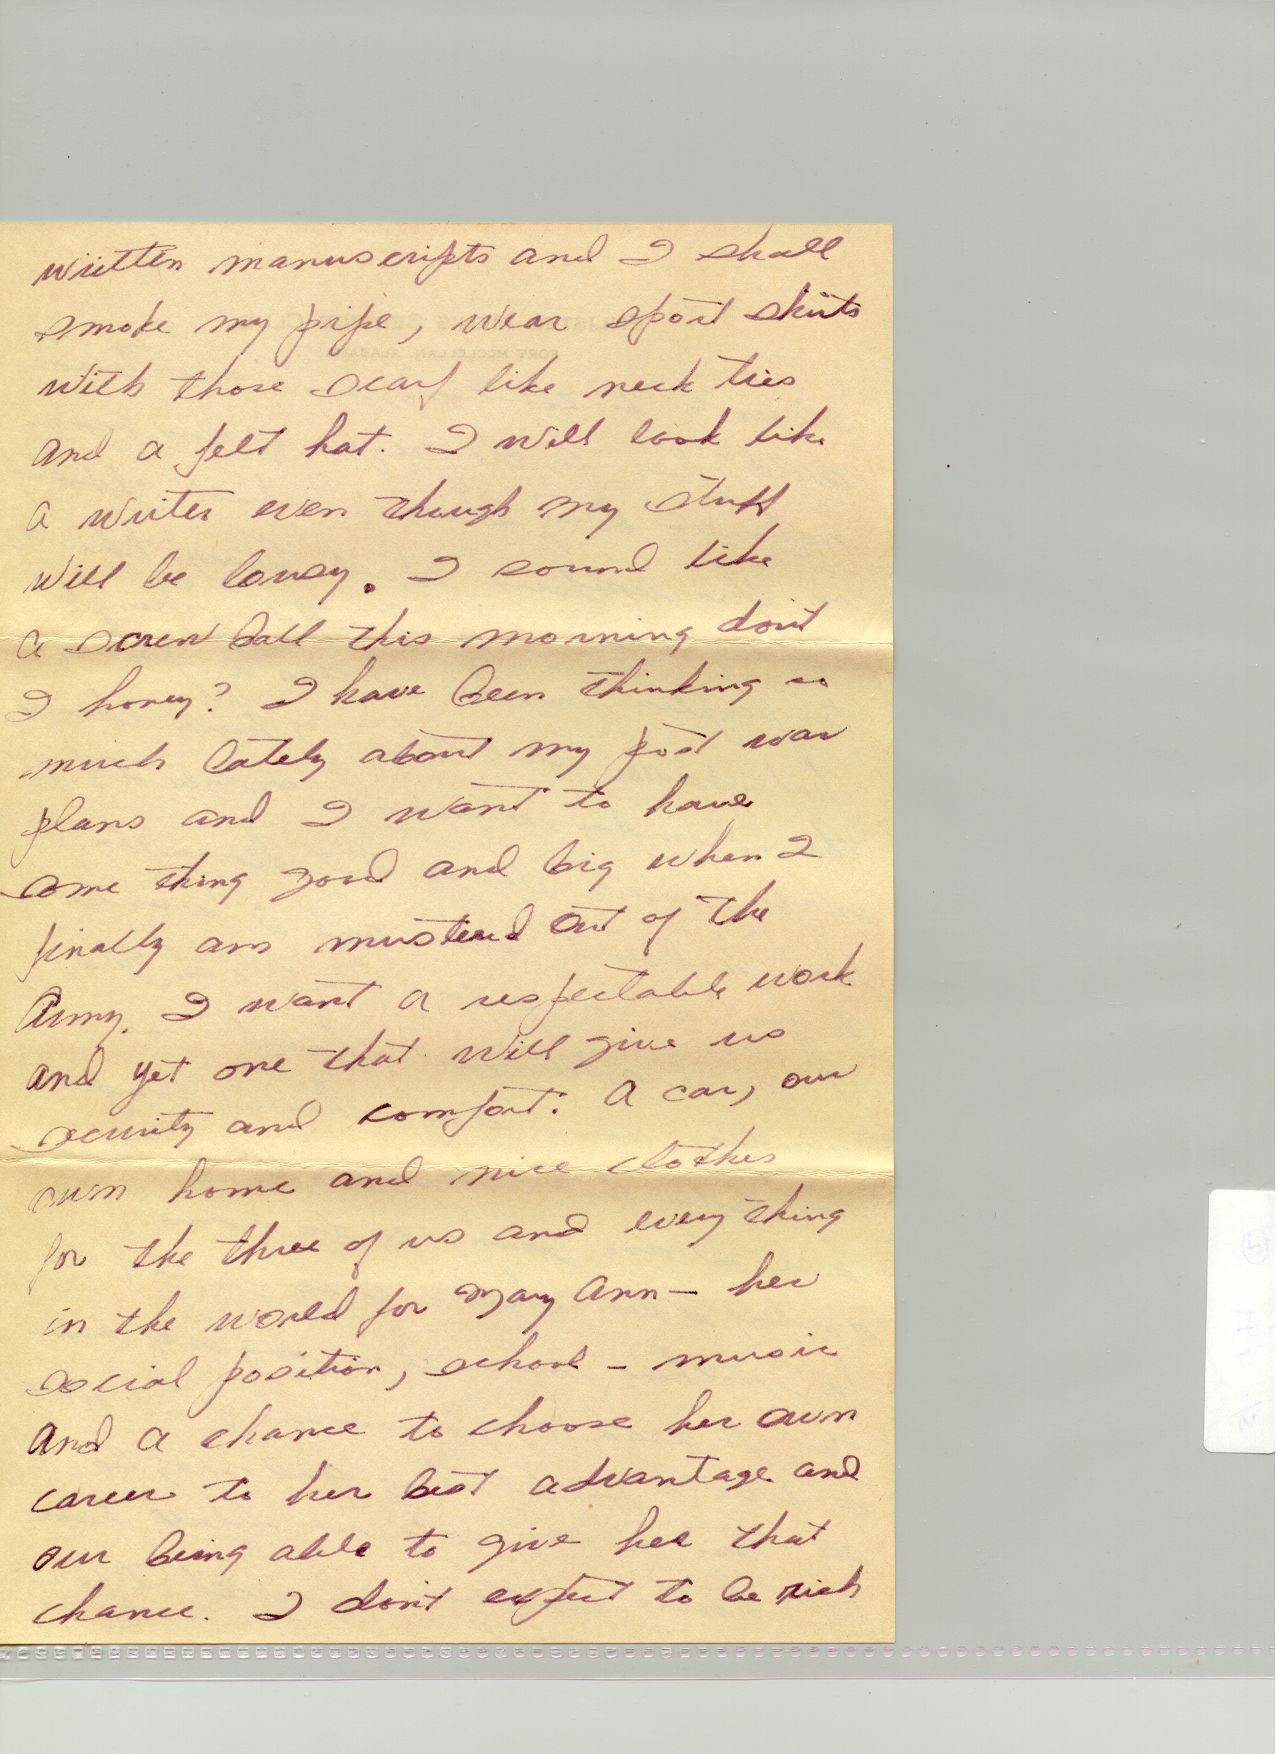 written manuscripts and I shall
smoke my pipe, wear sport shirts
with those scarf like neck ties
and a felt hat. I will look like
a writer even though my stuff
will be lousy. I sound like
a screw ball this morning don't
I honey? I have been thinking so
much lately about my post war
plans and I want to have
some thing good and big when I
finally am mustered out of the
Army. I want a respectable work
and yet one that will give us
security and comfort. A car, our
own home and nice clothes
for the three of us and every thing
in the world for Mary Ann - her
social position, school - music
and a chance to choose her own
career to her best advantage and
our being able to give her that
chance. I don't expect to be rich
FORT MCCLELLAN, ALABAMA